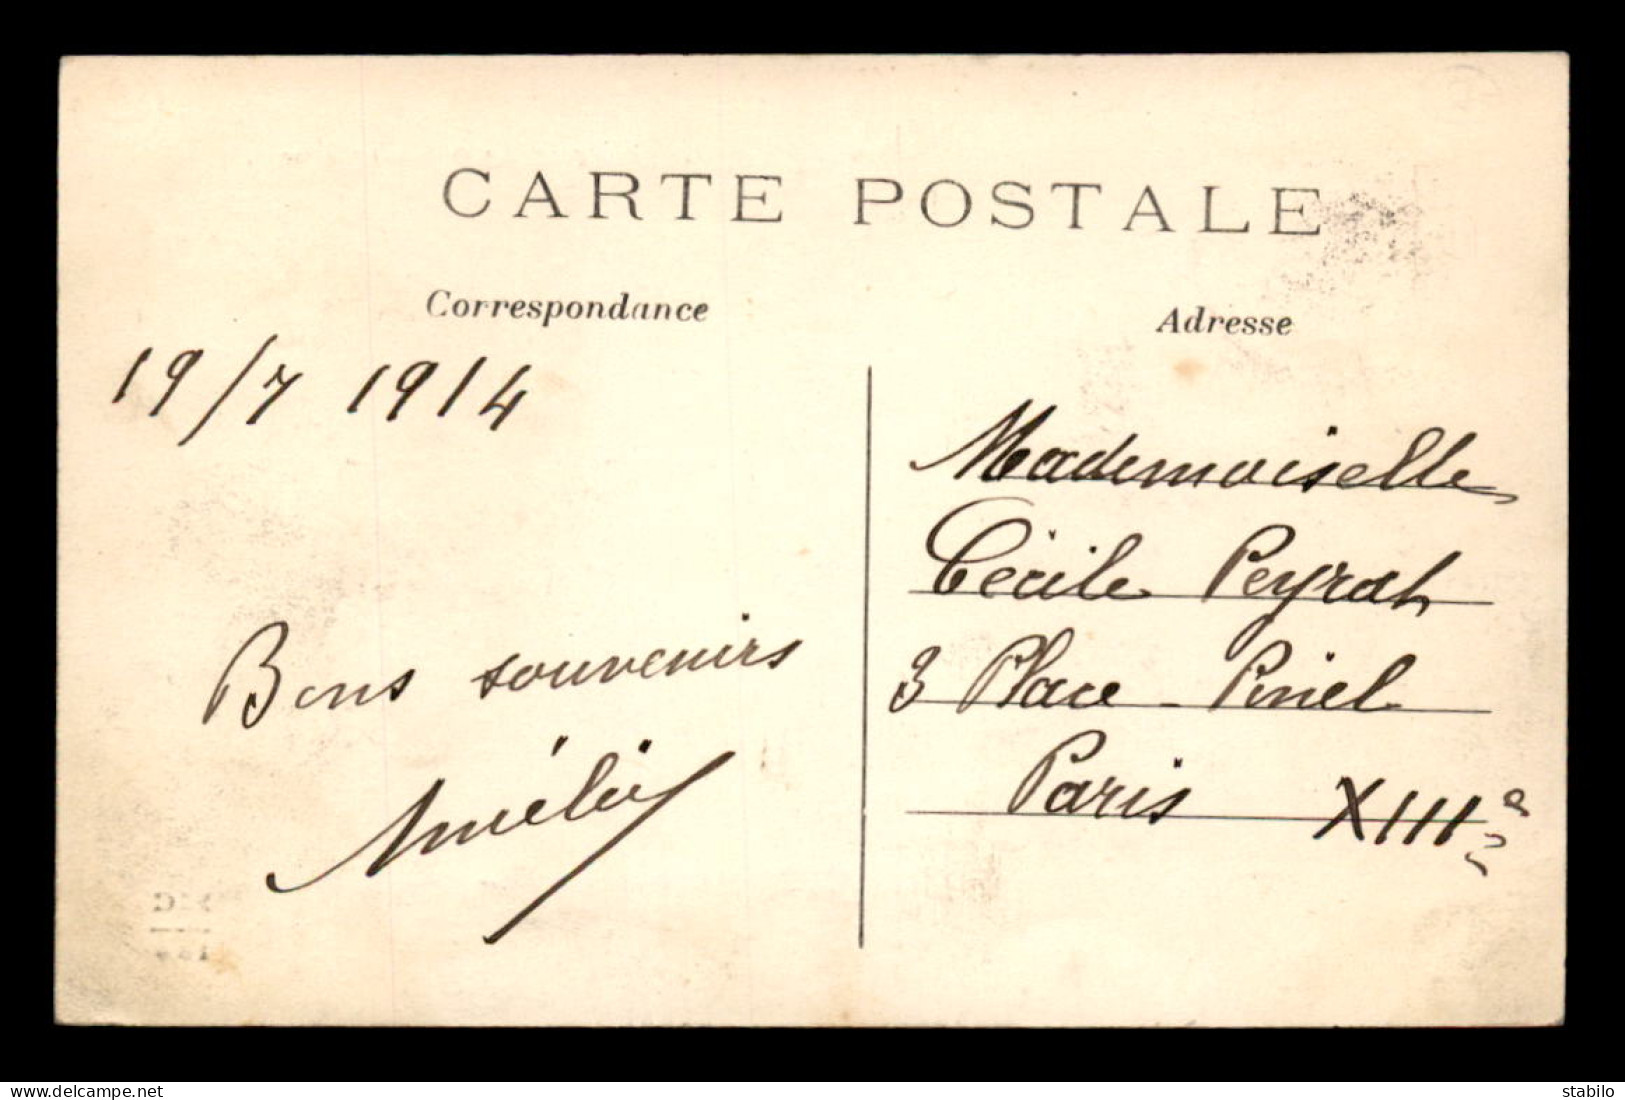 CARTE POSTALE
Correspondance
19/7 1914
Bons souvenirs
Amélie
Adresse
Mademoiselle
Cécile Peyrat
3 Place - Pinel
Paris XIIIe
https://www.delcampe.net
stabilo